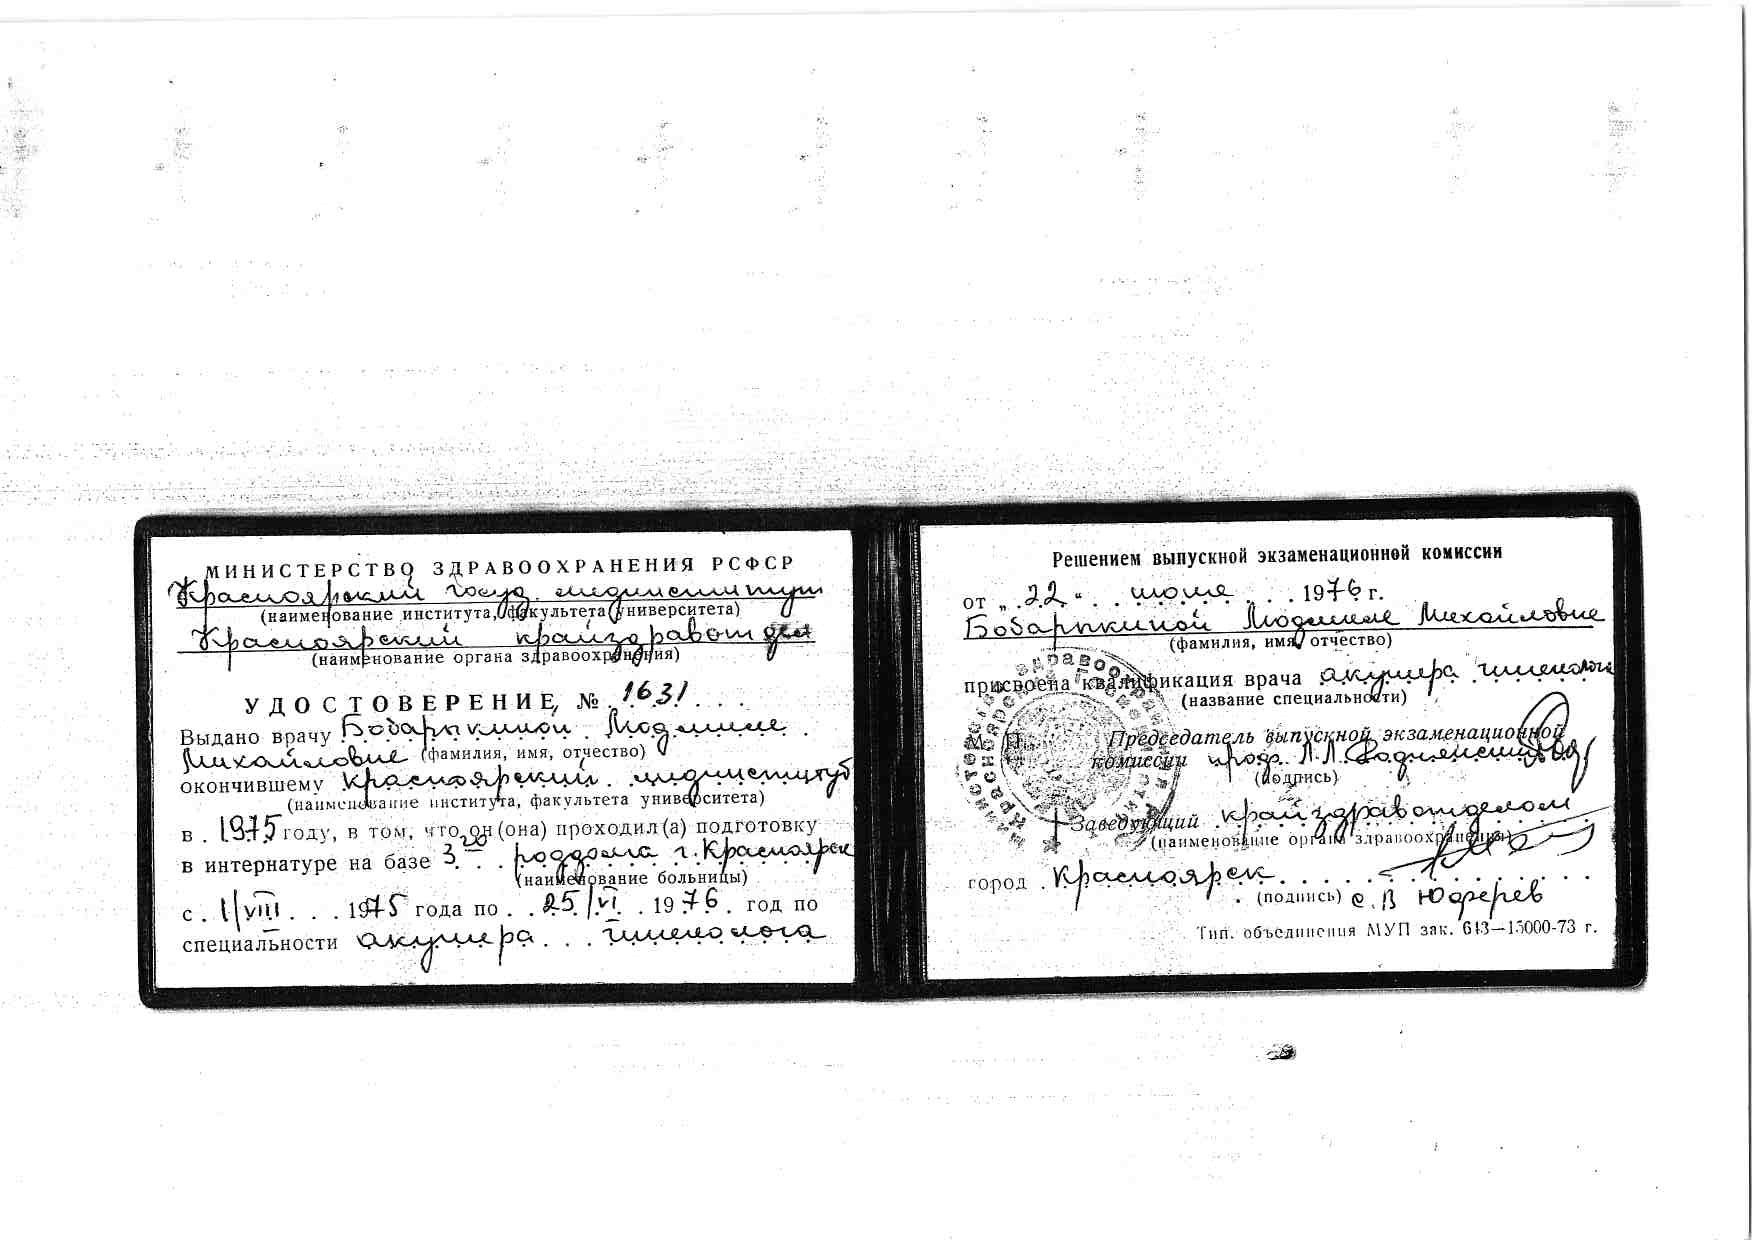 МИНИСТЕРСТВО ЗДРАВООХРАНЕНИЯ РСФСР
Красноярский госуд. мединститут
(наименование института, факультета университета)
Красноярский крайздравотдел
(наименование органа здравоохранения)
УДОСТОВЕРЕНИЕ, № 1631
Выдано врачу Людмиле
Михайловне (фамилия, имя, отчество)
окончившему Красноярский
(наименование института, факультета университета)
в 1975 году, в том, что он (она) проходил(а) подготовку
в интернатуре на базе 3го роддома г. Красноярск
(наименование больницы)
с 1/VIII 1975 года по 25/VI 1976 год по
специальности акушера гинеколога
Решением выпускной экзаменационной комиссии
от „22" июня 1976 г.
Людмиле Михайловне
(фамилия, имя, отчество)
присвоена квалификация врача акушера гинеколога
(название специальности)
М. П. Председатель выпускной экзаменационной
комиссии проф. Л.Л.
(подпись)
Заведующий крайздравотделом
(наименование органа здравоохранения)
город Красноярск
(подпись) С. В. Юферев
Тип. объединения МУП зак. 613—15000-73 г.